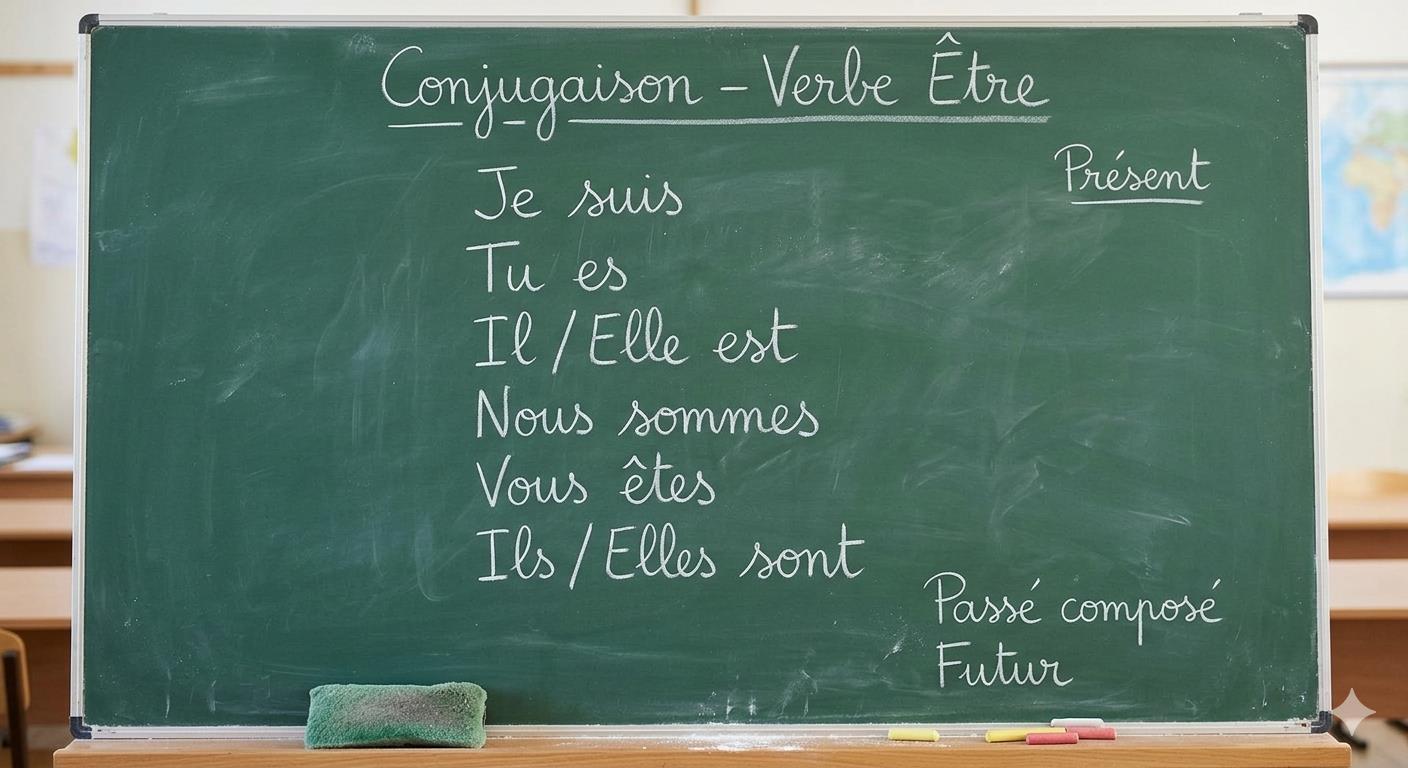 Conjugaison – Verbe Être
Présent
Je suis
Tu es
Il / Elle est
Nous sommes
Vous êtes
Ils / Elles sont
Passé composé
Futur